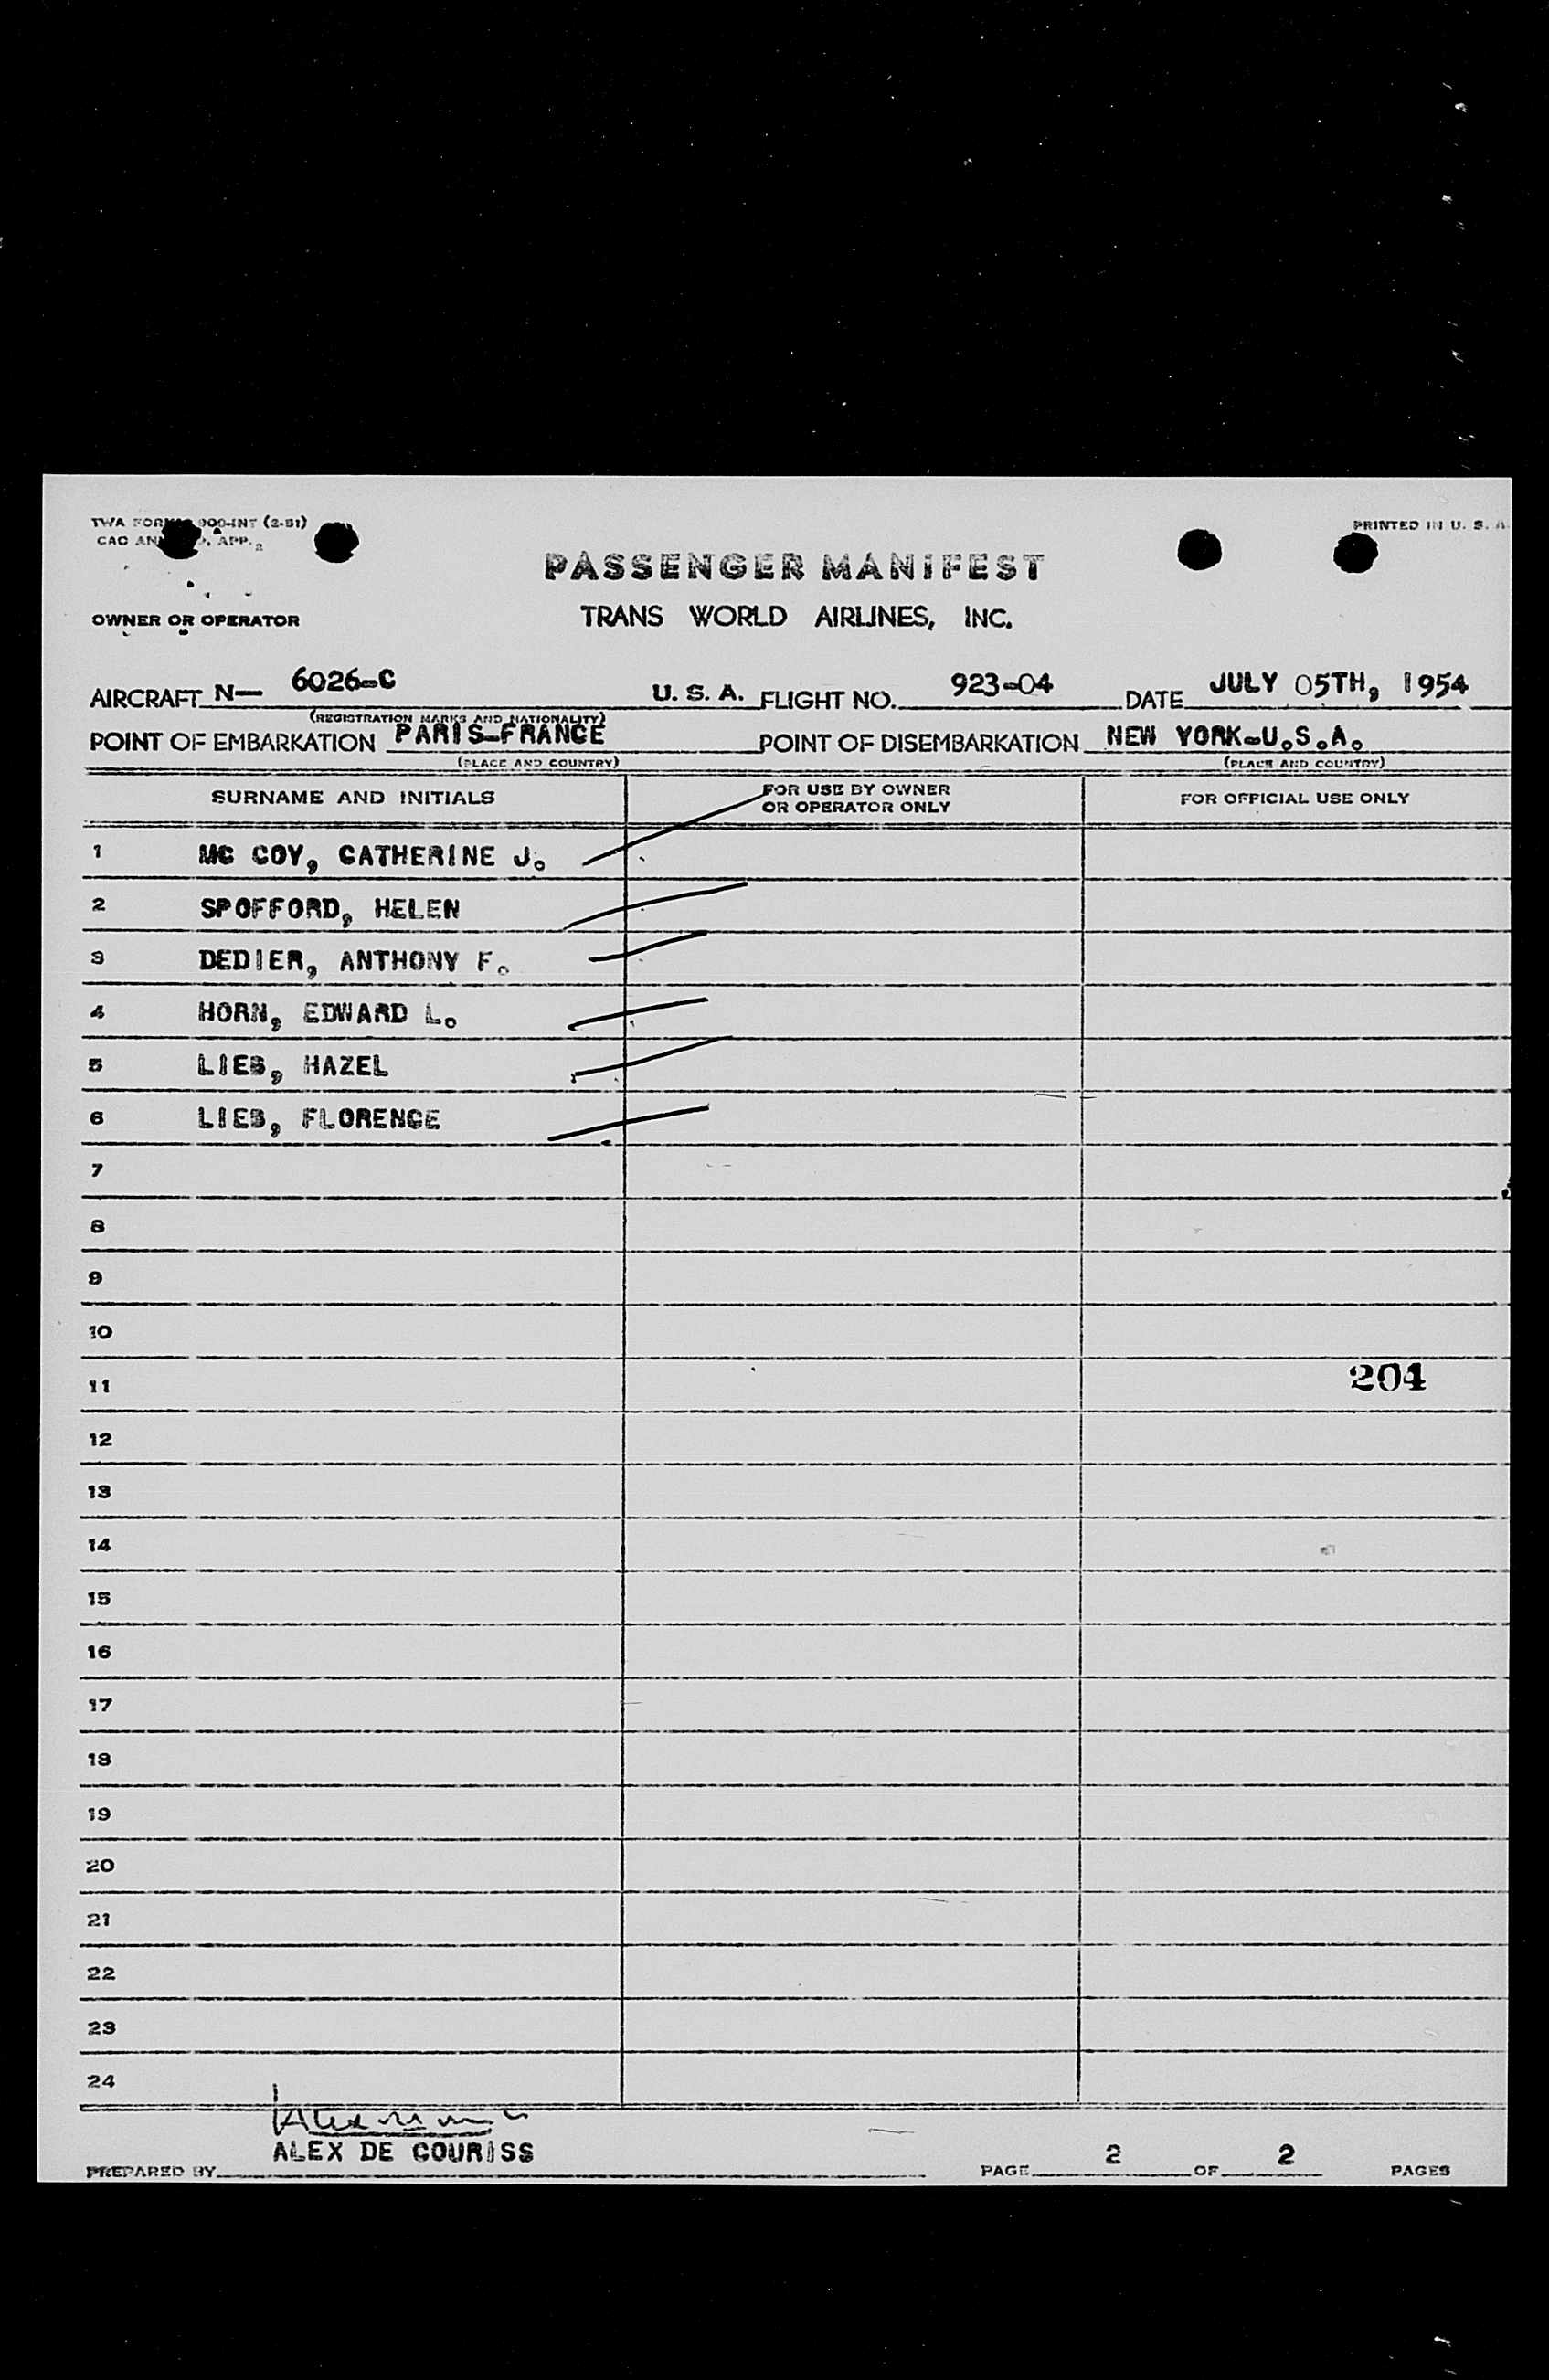 TWA FORM 900-INT (2-51)
CAO APP. 2
PRINTED IN U. S. A.
PASSENGER MANIFEST
OWNER OR OPERATOR
TRANS WORLD AIRLINES, INC.
AIRCRAFT N— 6026-C U. S. A. FLIGHT NO. 923-04 DATE JULY 05TH, 1954
(REGISTRATION MARKS AND NATIONALITY)
POINT OF EMBARKATION PARIS-FRANCE POINT OF DISEMBARKATION NEW YORK-U.S.A.
(PLACE AND COUNTRY) (PLACE AND COUNTRY)
SURNAME AND INITIALS FOR USE BY OWNER OR OPERATOR ONLY FOR OFFICIAL USE ONLY
1 MC COY, CATHERINE J.
2 SPOFFORD, HELEN
3 DEDIER, ANTHONY F.
4 HORN, EDWARD L.
5 LIEB, HAZEL
6 LIEB, FLORENCE
7
8
9
10
11 204
12
13
14
15
16
17
18
19
20
21
22
23
24
ALEX DE COURISS
PREPARED BY PAGE 2 OF 2 PAGES